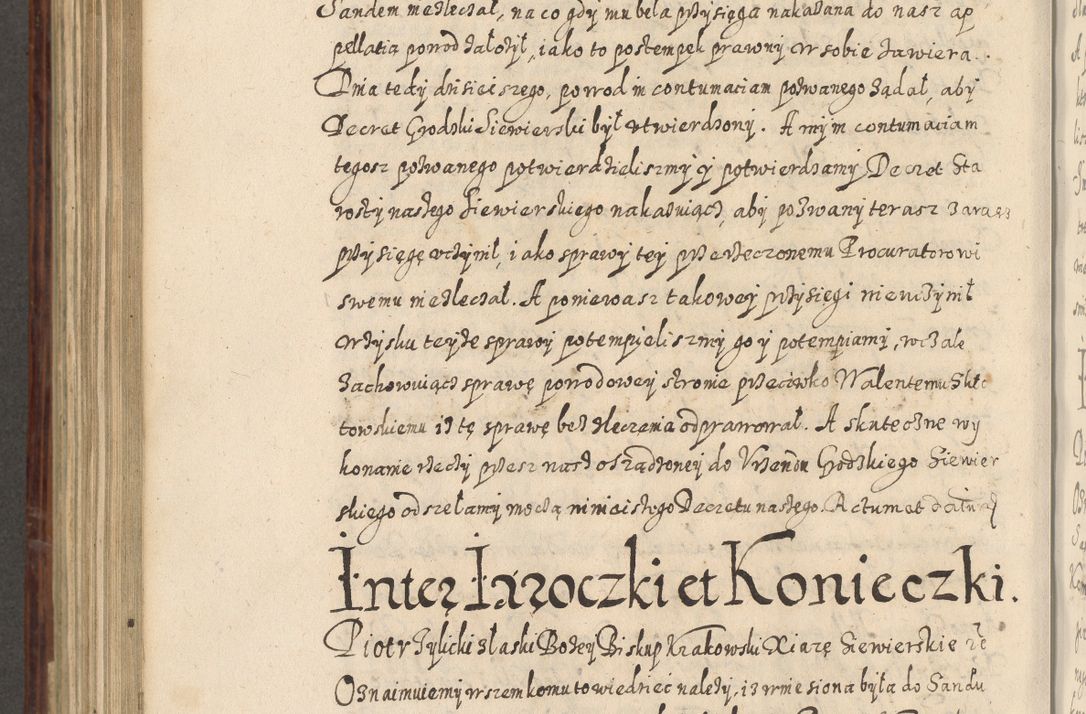 Sandem nie zleczał, na co gdy mu beła przysięga nakazana do nasz ap
pellatia powod założył, iako to postempek prawny w sobie zawiera.
Dnia tedy dzisieiszego, powod in contumaciam pozwanego żądał, aby
Decret Grodzki Siewierski był vtwierdzony. A my in contumaciam
tegosz pozwanego potwierdzieliszmy y potwierdzamy Decret Sta
rosty naszego Siewierskiego nakazuiącz, aby pozwany terasz zaraz
przysięgę vczynił, iako sprawy tey przerzeczonemu Procuratorowi
swemu nie zleczał. A poniewasz takowey przysięgi nie vczynił
w zysku teyże sprawy potempieliszmy go y potempiamy, wcale
zachowuiącz sprawę powodowey stronie przeciwko Walentemu
towskiemu iż tę sprawę bez zleczenia odprawował. A skuteczne wy
konanie rzeczy przesz nasz osządzoney do Vrzendu Grodzkiego Siewier
skiego odszełamy moczą ninieiszego Decretu naszego. Actum et datum
Inter Jaroczki et Konieczki.
Piotr Tylicki z łaski Bożey Biskup Krakowski Xiążę Siewierskie
Oznaimuiemy wszem komu to wiedzieć należy, iż wniesiona była do Sandu